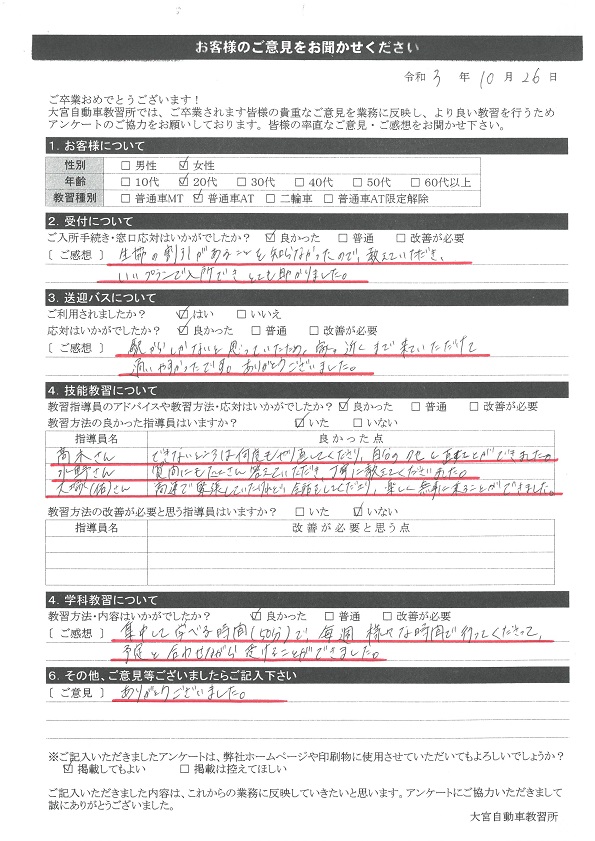 お客様のご意見をお聞かせください
令和 3 年 10 月 26 日
ご卒業おめでとうございます！
大宮自動車教習所では、ご卒業されます皆様の貴重なご意見を業務に反映し、より良い教習を行うため
アンケートのご協力をお願いしております。皆様の率直なご意見・ご感想をお聞かせ下さい。
1. お客様について
性別 □ 男性 ☑ 女性
年齢 □ 10代 ☑ 20代 □ 30代 □ 40代 □ 50代 □ 60代以上
教習種別 □ 普通車MT ☑ 普通車AT □ 二輪車 □ 普通車AT限定解除
2. 受付について
ご入所手続き・窓口応対はいかがでしたか？ ☑ 良かった □ 普通 □ 改善が必要
〔 ご感想 〕 生協の割引があることも知らなかったので、教えていただき、
いいプランで入所でき とても助かりました。
3. 送迎バスについて
ご利用されましたか？ ☑ はい □ いいえ
応対はいかがでしたか？ ☑ 良かった □ 普通 □ 改善が必要
〔 ご感想 〕 駅からしかないと思っていたため、家の近くまで来ていただけて
通いやすかったです。ありがとうございました。
4. 技能教習について
教習指導員のアドバイスや教習方法・応対はいかがでしたか？ ☑ 良かった □ 普通 □ 改善が必要
教習方法の良かった指導員はいますか？ ☑ いた □ いない
指導員名 良かった点
高木さん できないところは何度もやり直してくださり、自分の
水野さん 質問にもたくさん答えていただき、丁寧に教えてくださいました。
大塚(佑)さん 高速で緊張していたけれど、会話もしてくださり、楽しく無事に来ることができました。
教習方法の改善が必要と思う指導員はいますか？ □ いた ☑ いない
指導員名 改善が必要と思う点
4. 学科教習について
教習方法・内容はいかがでしたか？ ☑ 良かった □ 普通 □ 改善が必要
〔 ご感想 〕 集中して学べる時間(50分)で、毎週 様々な時間で行ってくださって、
予定と合わせながら 受けることができました。
6. その他、ご意見等ございましたらご記入下さい
〔 ご意見 〕 ありがとうございました。
※ご記入いただきましたアンケートは、弊社ホームページや印刷物に使用させていただいてもよろしいでしょうか？
☑ 掲載してもよい □ 掲載は控えてほしい
ご記入いただきました内容は、これからの業務に反映していきたいと思います。アンケートにご協力いただきまして
誠にありがとうございました。
大宮自動車教習所